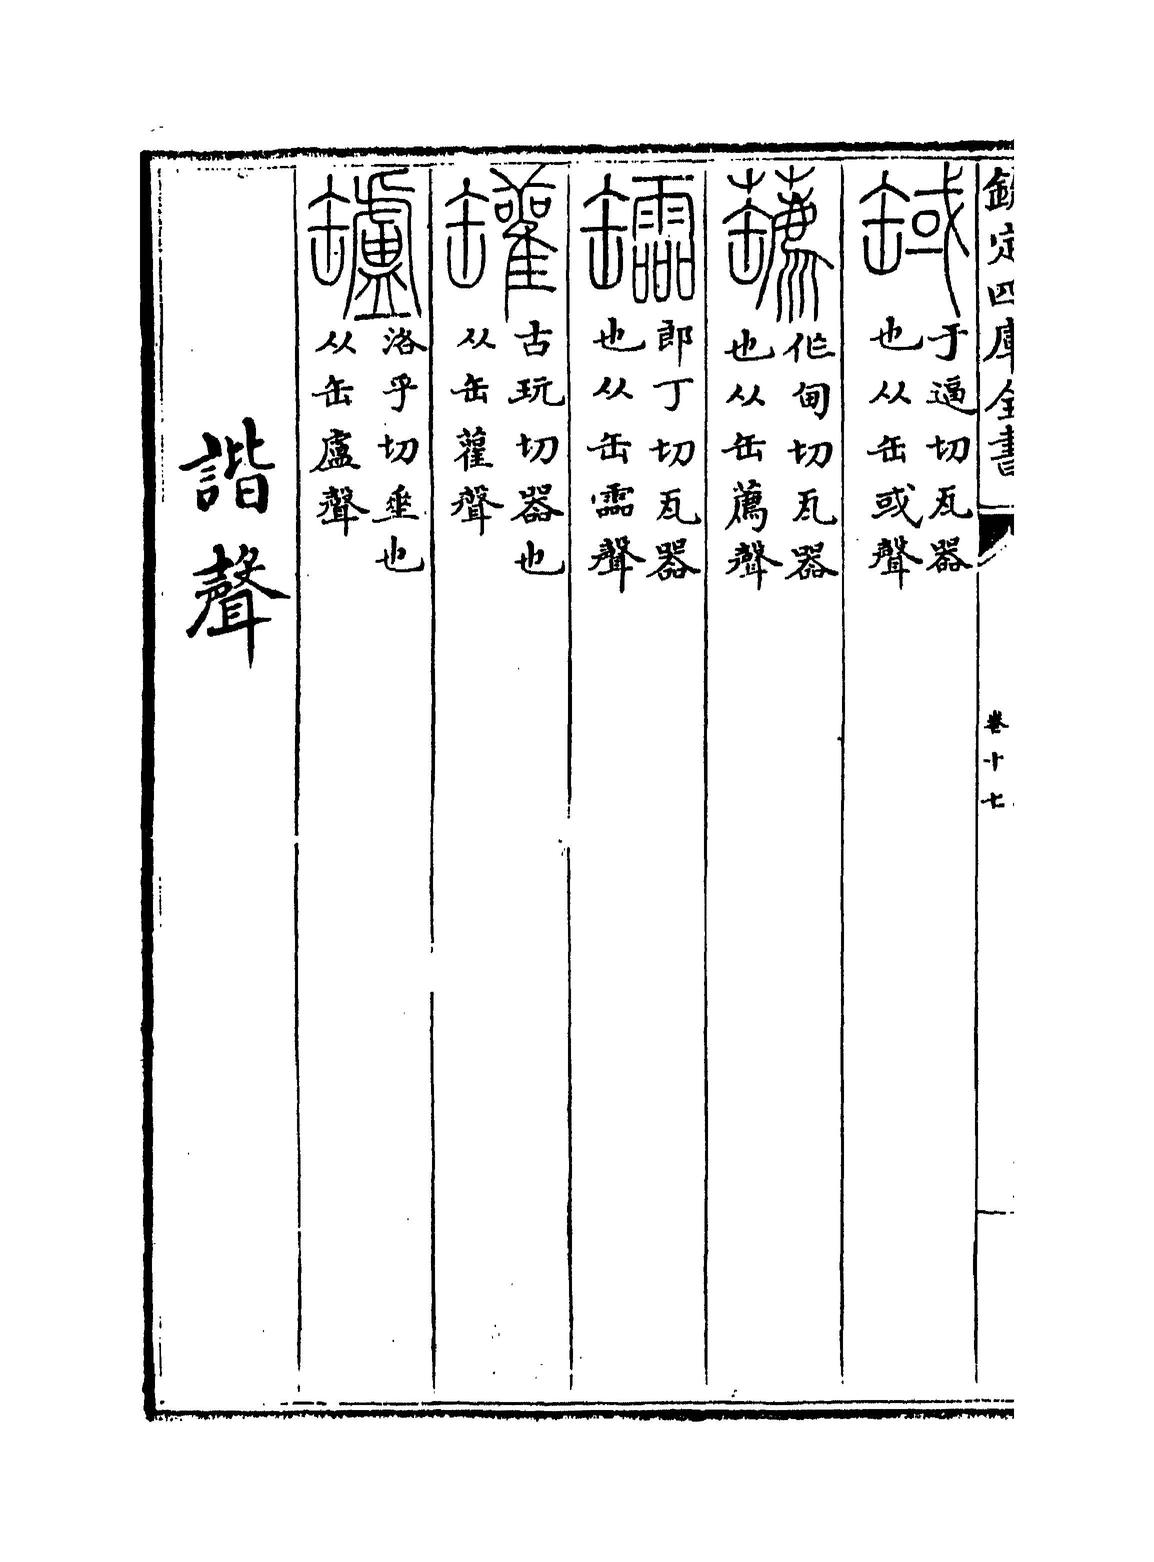 欽定四庫全書
卷十七
罭 于逼切瓦器
也从缶或聲
作甸切瓦器
也从缶薦聲
郎丁切瓦器
也从缶霝聲
罐 古玩切器也
从缶雚聲
罏 洛乎切㽀也
从缶盧聲
諧聲